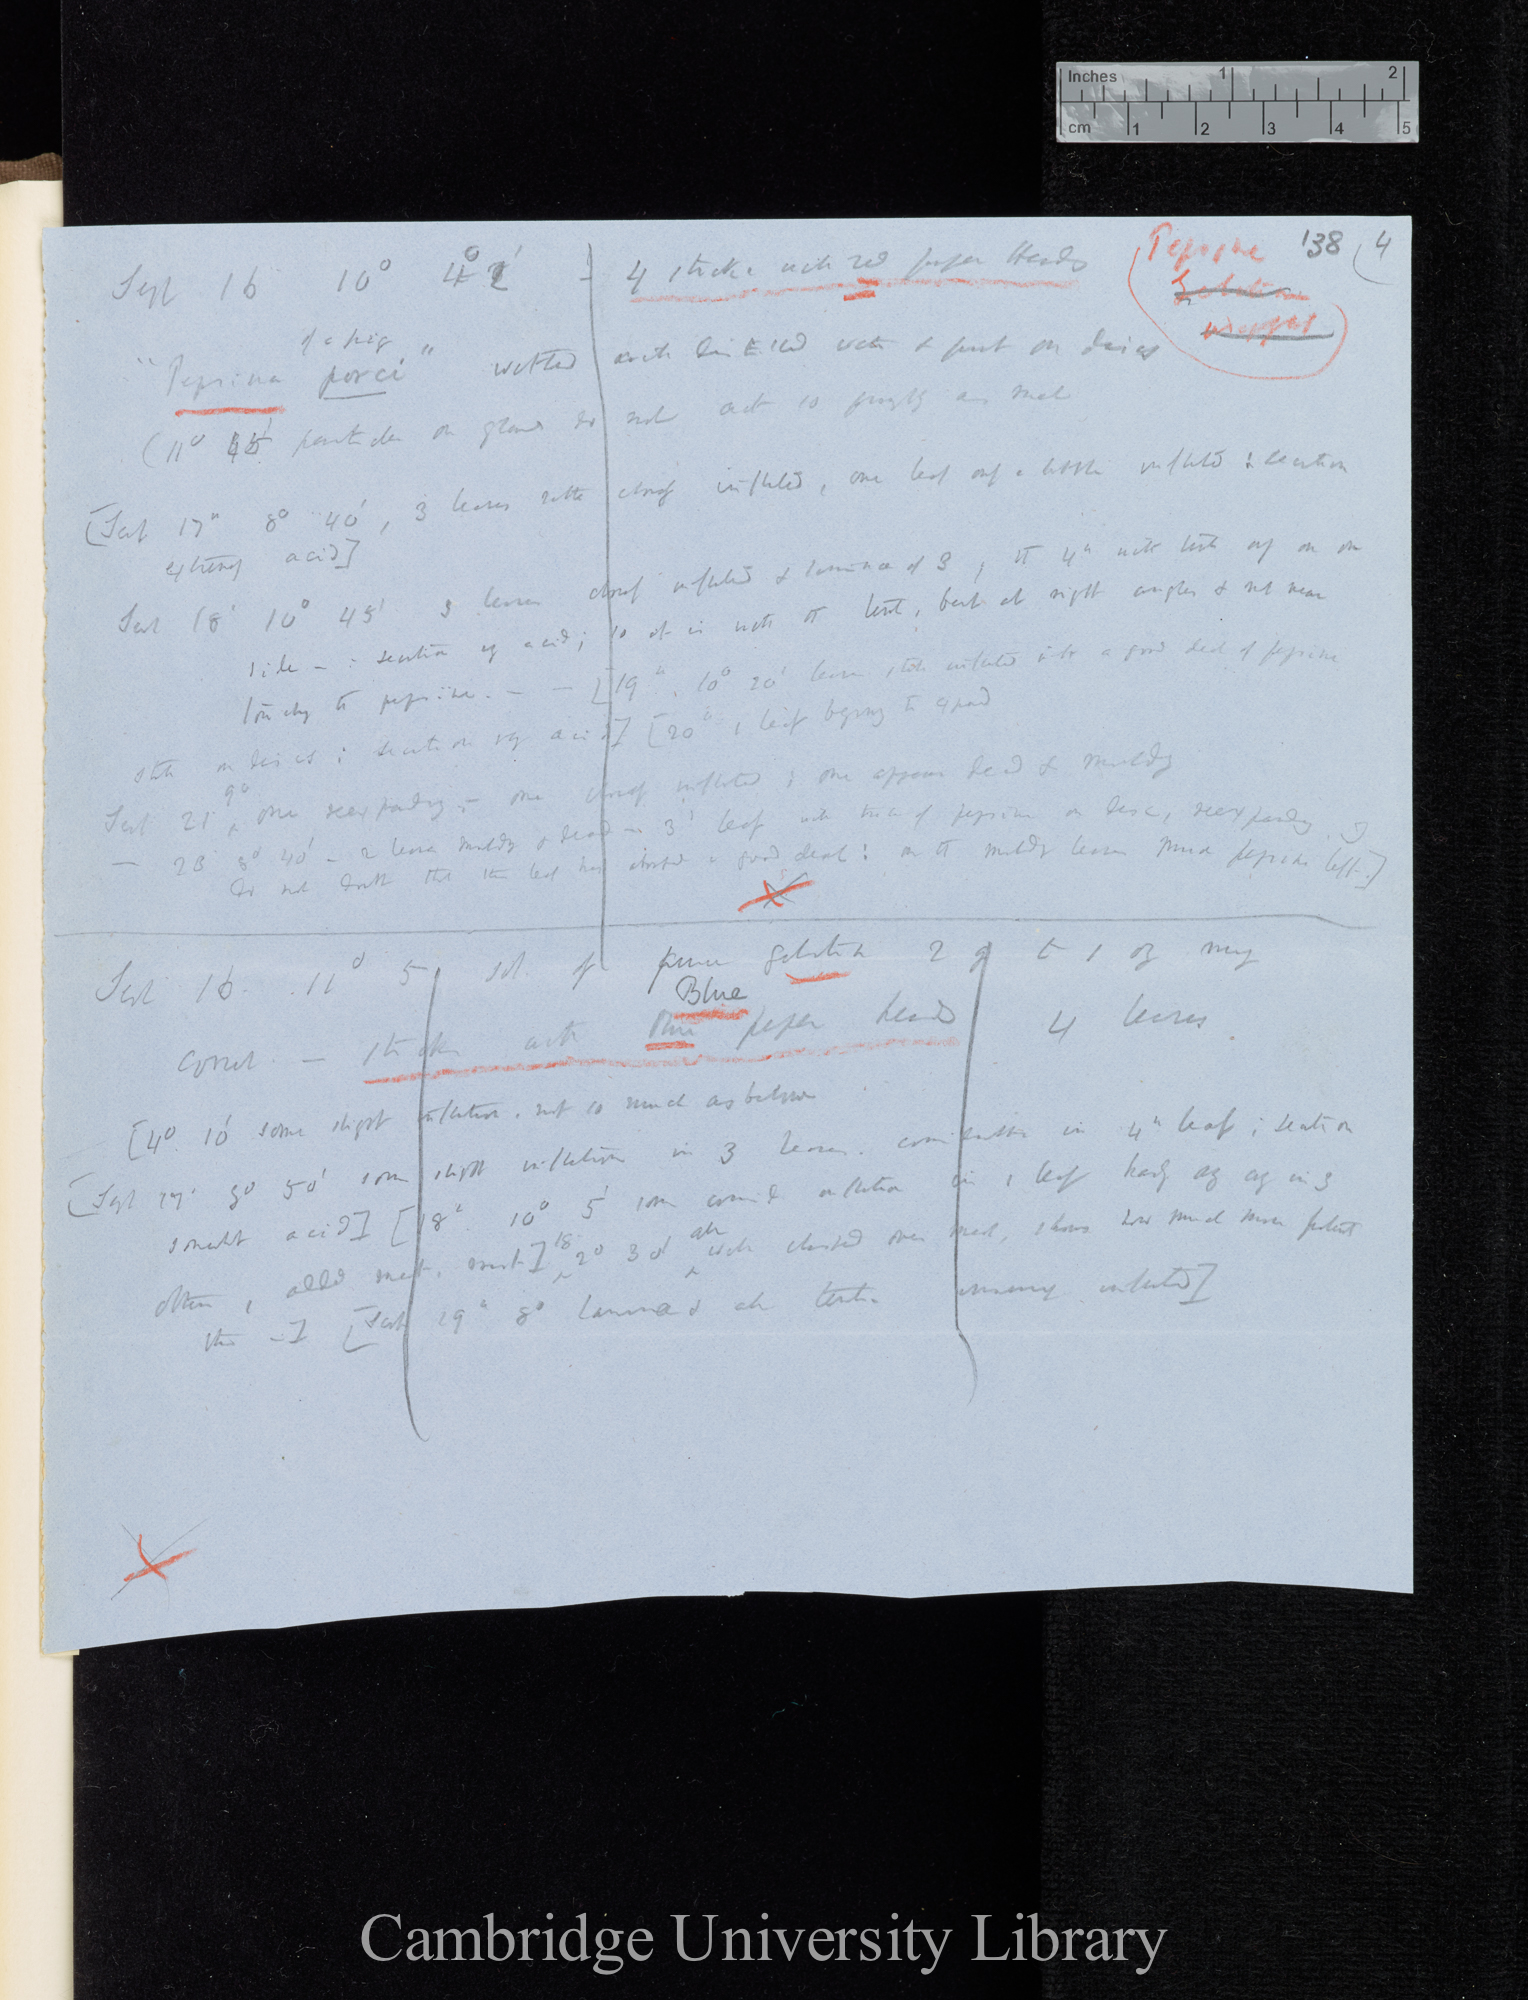 Inches 1 2
cm 1 2 3 4 5
Pepsine 138 (4
Gelatine
Sept 16 10° 42' – 4 sticks with red paper Heads
of a pig
"Pepsina porci" wetted with distilled water & put on discs
(11° 45' particles on glands do not act so promptly as meat
[Sept 17" 8° 40', 3 leaves rather closely inflected, one leaf only a little inflected: secretion
extremely acid]
Sept 18' 10° 45' 3 leaves closely inflected & laminæ of 3, the 4th with tent only on one
side – : secretion very acid; so it is with the tent, bent at right angles & not near
touching the pepsine. – – [19" 10° 20' leaves still inflected with a good deal of pepsine
still on discs; secretion very acid] [20" 1 leaf begins to expand
Sept 21 9° one reexpanding – one closely inflected; one appears dead & mouldy
– 23 8° 40' – 2 leaves mouldy & dead – 3d leaf with trace of pepsine on disc, reexpanding. I
do not doubt that this leaf has absorbed a good deal: on the mouldy leaves much pepsine left.]
Sept 16. 11° 5 sol. of pure gelatine 2 g to 1 oz my
Blue
– sticks with blue paper heads 4 leaves
[4° 10' some slight inflection. not so much as below
[Sept 17' 8° 50' some slight inflection in 3 leaves. considerable in 4th leaf; secretion
somewhat acid] [18" 10° 5' some consid inflection in 1 leaf hardly any in 3
others, added meat, moist] 18 2° 30' all well closed over meat, shows how much more potent
this is –] [Sept 19" 8° Laminæ & all tent. inflected]
Cambridge University Library